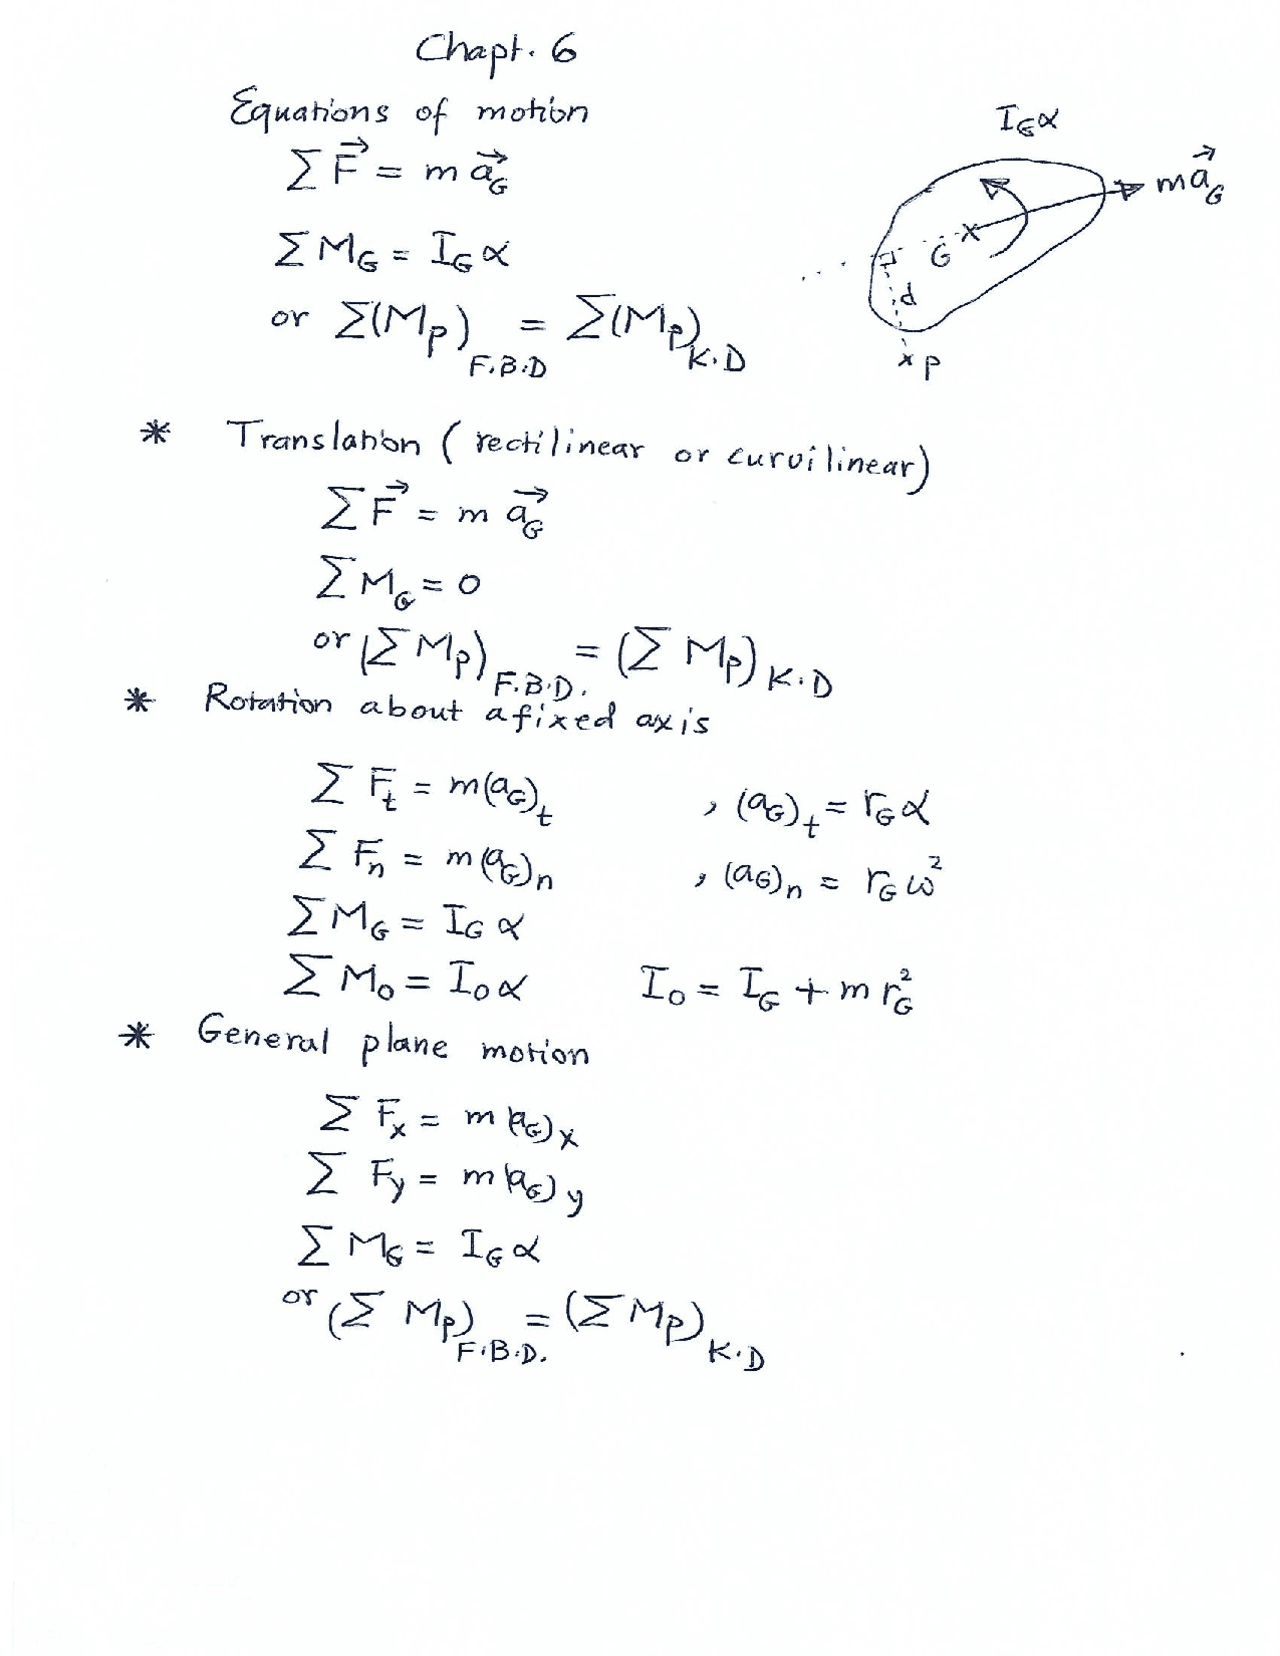 Chapt. 6
Equations of motion
∑F⃗ = m a⃗_G
∑M_G = I_G α
or ∑(M_P)_F.B.D = ∑(M_P)_K.D
I_G α
m a⃗_G
G
d
P
* Translation (rectilinear or curvilinear)
∑F⃗ = m a⃗_G
∑M_G = 0
or (∑ M_P)_F.B.D. = (∑ M_P)_K.D
* Rotation about a fixed axis
∑ F_t = m(a_G)_t , (a_G)_t = r_G α
∑ F_n = m(a_G)_n , (a_G)_n = r_G ω²
∑M_G = I_G α
∑ M_O = I_O α I_O = I_G + m r_G²
* General plane motion
∑ F_x = m(a_G)_x
∑ F_y = m(a_G)_y
∑ M_G = I_G α
or (∑ M_P)_F.B.D. = (∑ M_P)_K.D